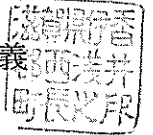 義
滋賀県伊香
郡西浅井
町長之印